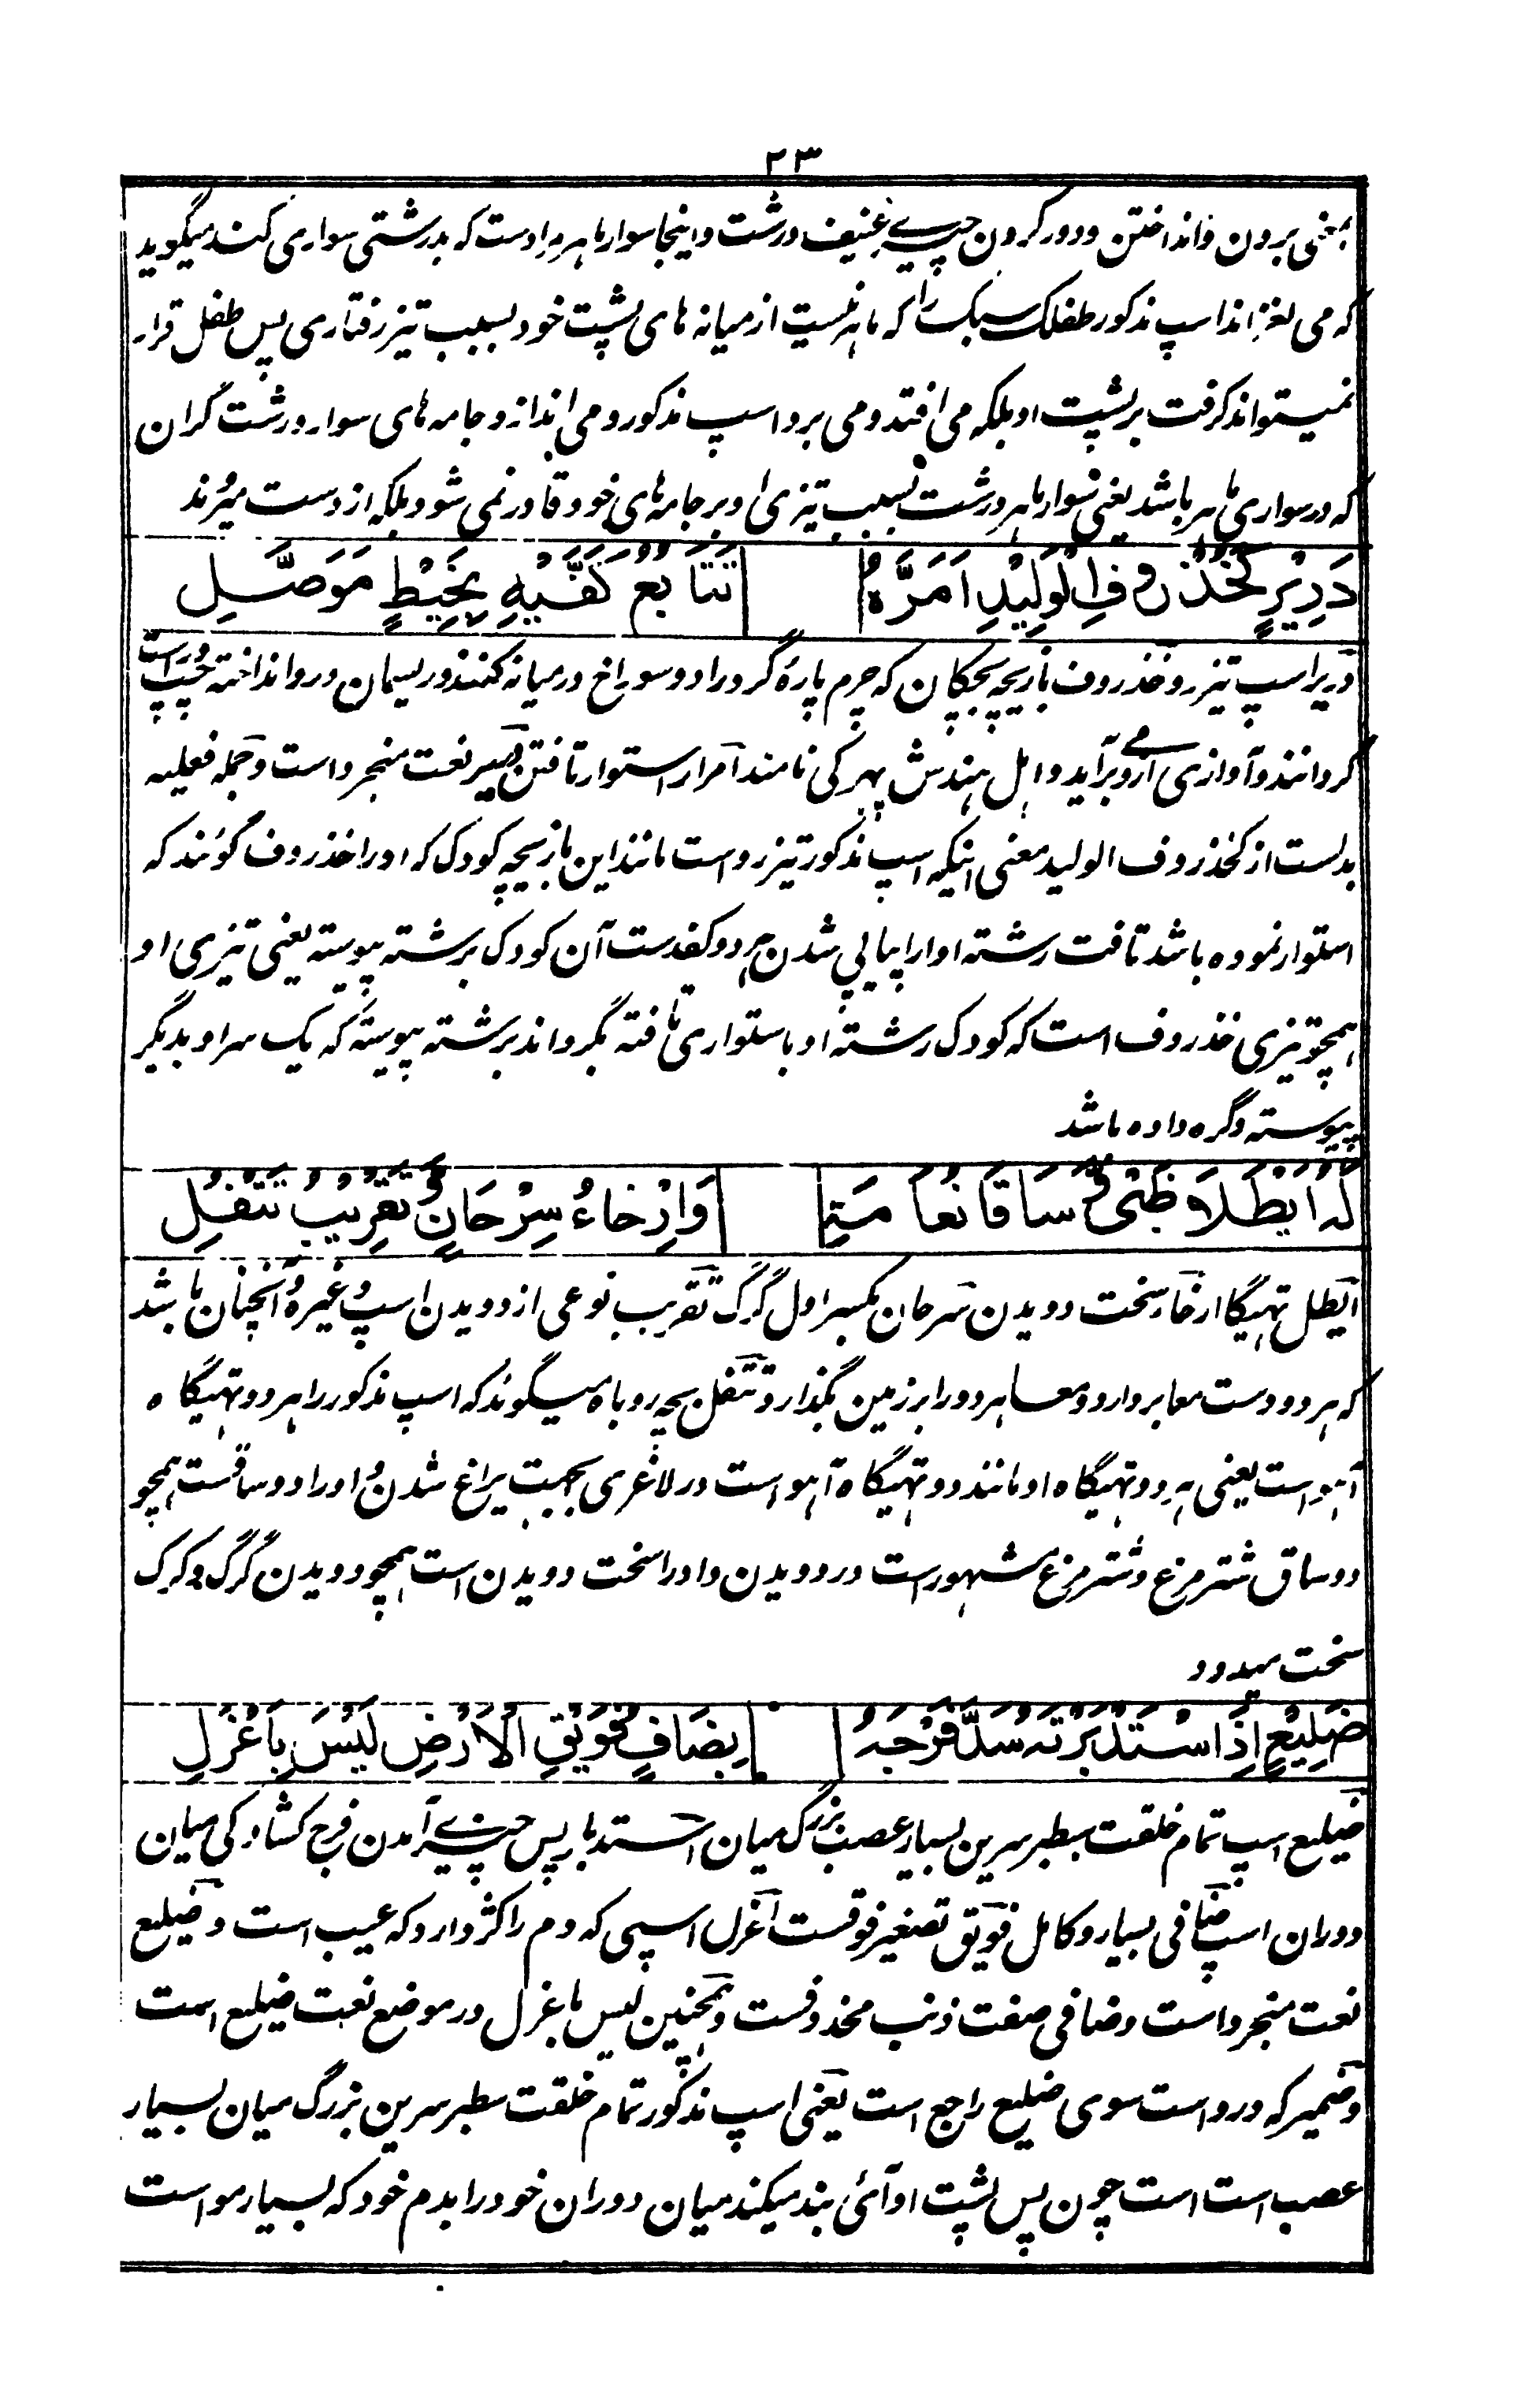 ۲۳
بمعنی برون و انداختن و دور کردن چیزے عنیف درشت و اینجا سوار ماهر مرادست که بدرشتی سواری کند میگوید
که می لغزاند اسپ مذکور طفلک سبک را که ماهر نیست از میانه های پشت خود بسبب تیز رفتاری پس طفل قرار
نمیتواند گرفت بر پشت او بلکه می افتد و می برد اسپ مذکور و می اندازد جامه های سوار درشت گران
که در سواری ماهر باشد یعنی سوار ماهر درشت بسبب تیزی او بر جامه های خود قادر نمی شود بلکه از دست میرند
دَرِيْرٍ كَخُذْرُوفِ الْوَلِيْدِ اَمَرَّهُ تَتَابُعُ كَفَّيْهِ بِخَيْطٍ مُوَصَّلِ
دریر اسپ تیز رو خذروف بازیچه بچکان که چرم پارهٔ گرد را دو سوراخ در میانه کنند و ریسمان درو انداخته چپ و راست
گردانند و آوازی ازو برآید و اهل هندش پهرکی نامند امرار استوار تافتن دریر نعت منجرد است و جمله فعلیه
بدلست از کخذروف الولید معنی اینکه اسپ مذکور تیز رو است مانند این بازیچه کودک که او را خذروف گویند که
استوار نموده باشد تافت رشته او را پیاپی شدن هر دو کفدست آن کودک برشته پیوسته یعنی تیزی او
همچو تیزی خذروف است که کودک رشته او باستواری تافته بگرداند برشته پیوسته که یک سر او بدیگر
پیوسته و گره داده باشد
لَهٗ اَيْطَلَا ظَبْیٍ وَّ سَاقَا نَعَامَةٍ وَاِرْخَاءُ سِرْحَانٍ وَّ تَقْرِيْبُ تَتْفُلِ
ایطل تهیگاه ارخاء سخت دویدن سرحان بکسر اول گرگ تقریب نوعی از دویدن اسپ و غیره و آنچنان باشد
که هر دو دست معا بردارد و معا هر دو را بر زمین بگذارد تتفل بچه روباه میگوید که اسپ مذکور را هر دو تهیگاه
آهو است یعنی هر دو تهیگاه او مانند دو تهیگاه آهو است در لاغری بجهت یراغ شدن و او را دو ساقست همچو
دو ساق شتر مرغ و شتر مرغ مشهور است در دویدن و او را سخت دویدن است همچو دویدن گرگ و گرگ
سخت میدود
ضَلِيْعٍ اِذَا اسْتَدْبَرْتَهٗ سَدَّ فَرْجَهٗ بِضَافٍ فُوَيْقَ الْاَرْضِ لَيْسَ بِاَعْزَلِ
ضلیع اسپ تمام خلقت سطبر سرین بسیار عصب بزرگ میان استدبار پس چیزے آمدن فرج کشادگی میان
دوران اسپ ضافی بسیار و کامل فویق تصغیر فوقست اعزل اسپی که دم را کژ دارد که عیب است و ضلیع
نعت منجرد است و ضافی صفت ذنب محذوفست و همچنین لیس باعزل در موضع نعت ضلیع است
و ضمیر که درو است سوی ضلیع راجع است یعنی اسپ مذکور تمام خلقت سطبر سرین بزرگ میان بسیار
عصب است است چون پس پشت او آئی بند میکند میان دوران خود را بدم خود که بسیار مو است